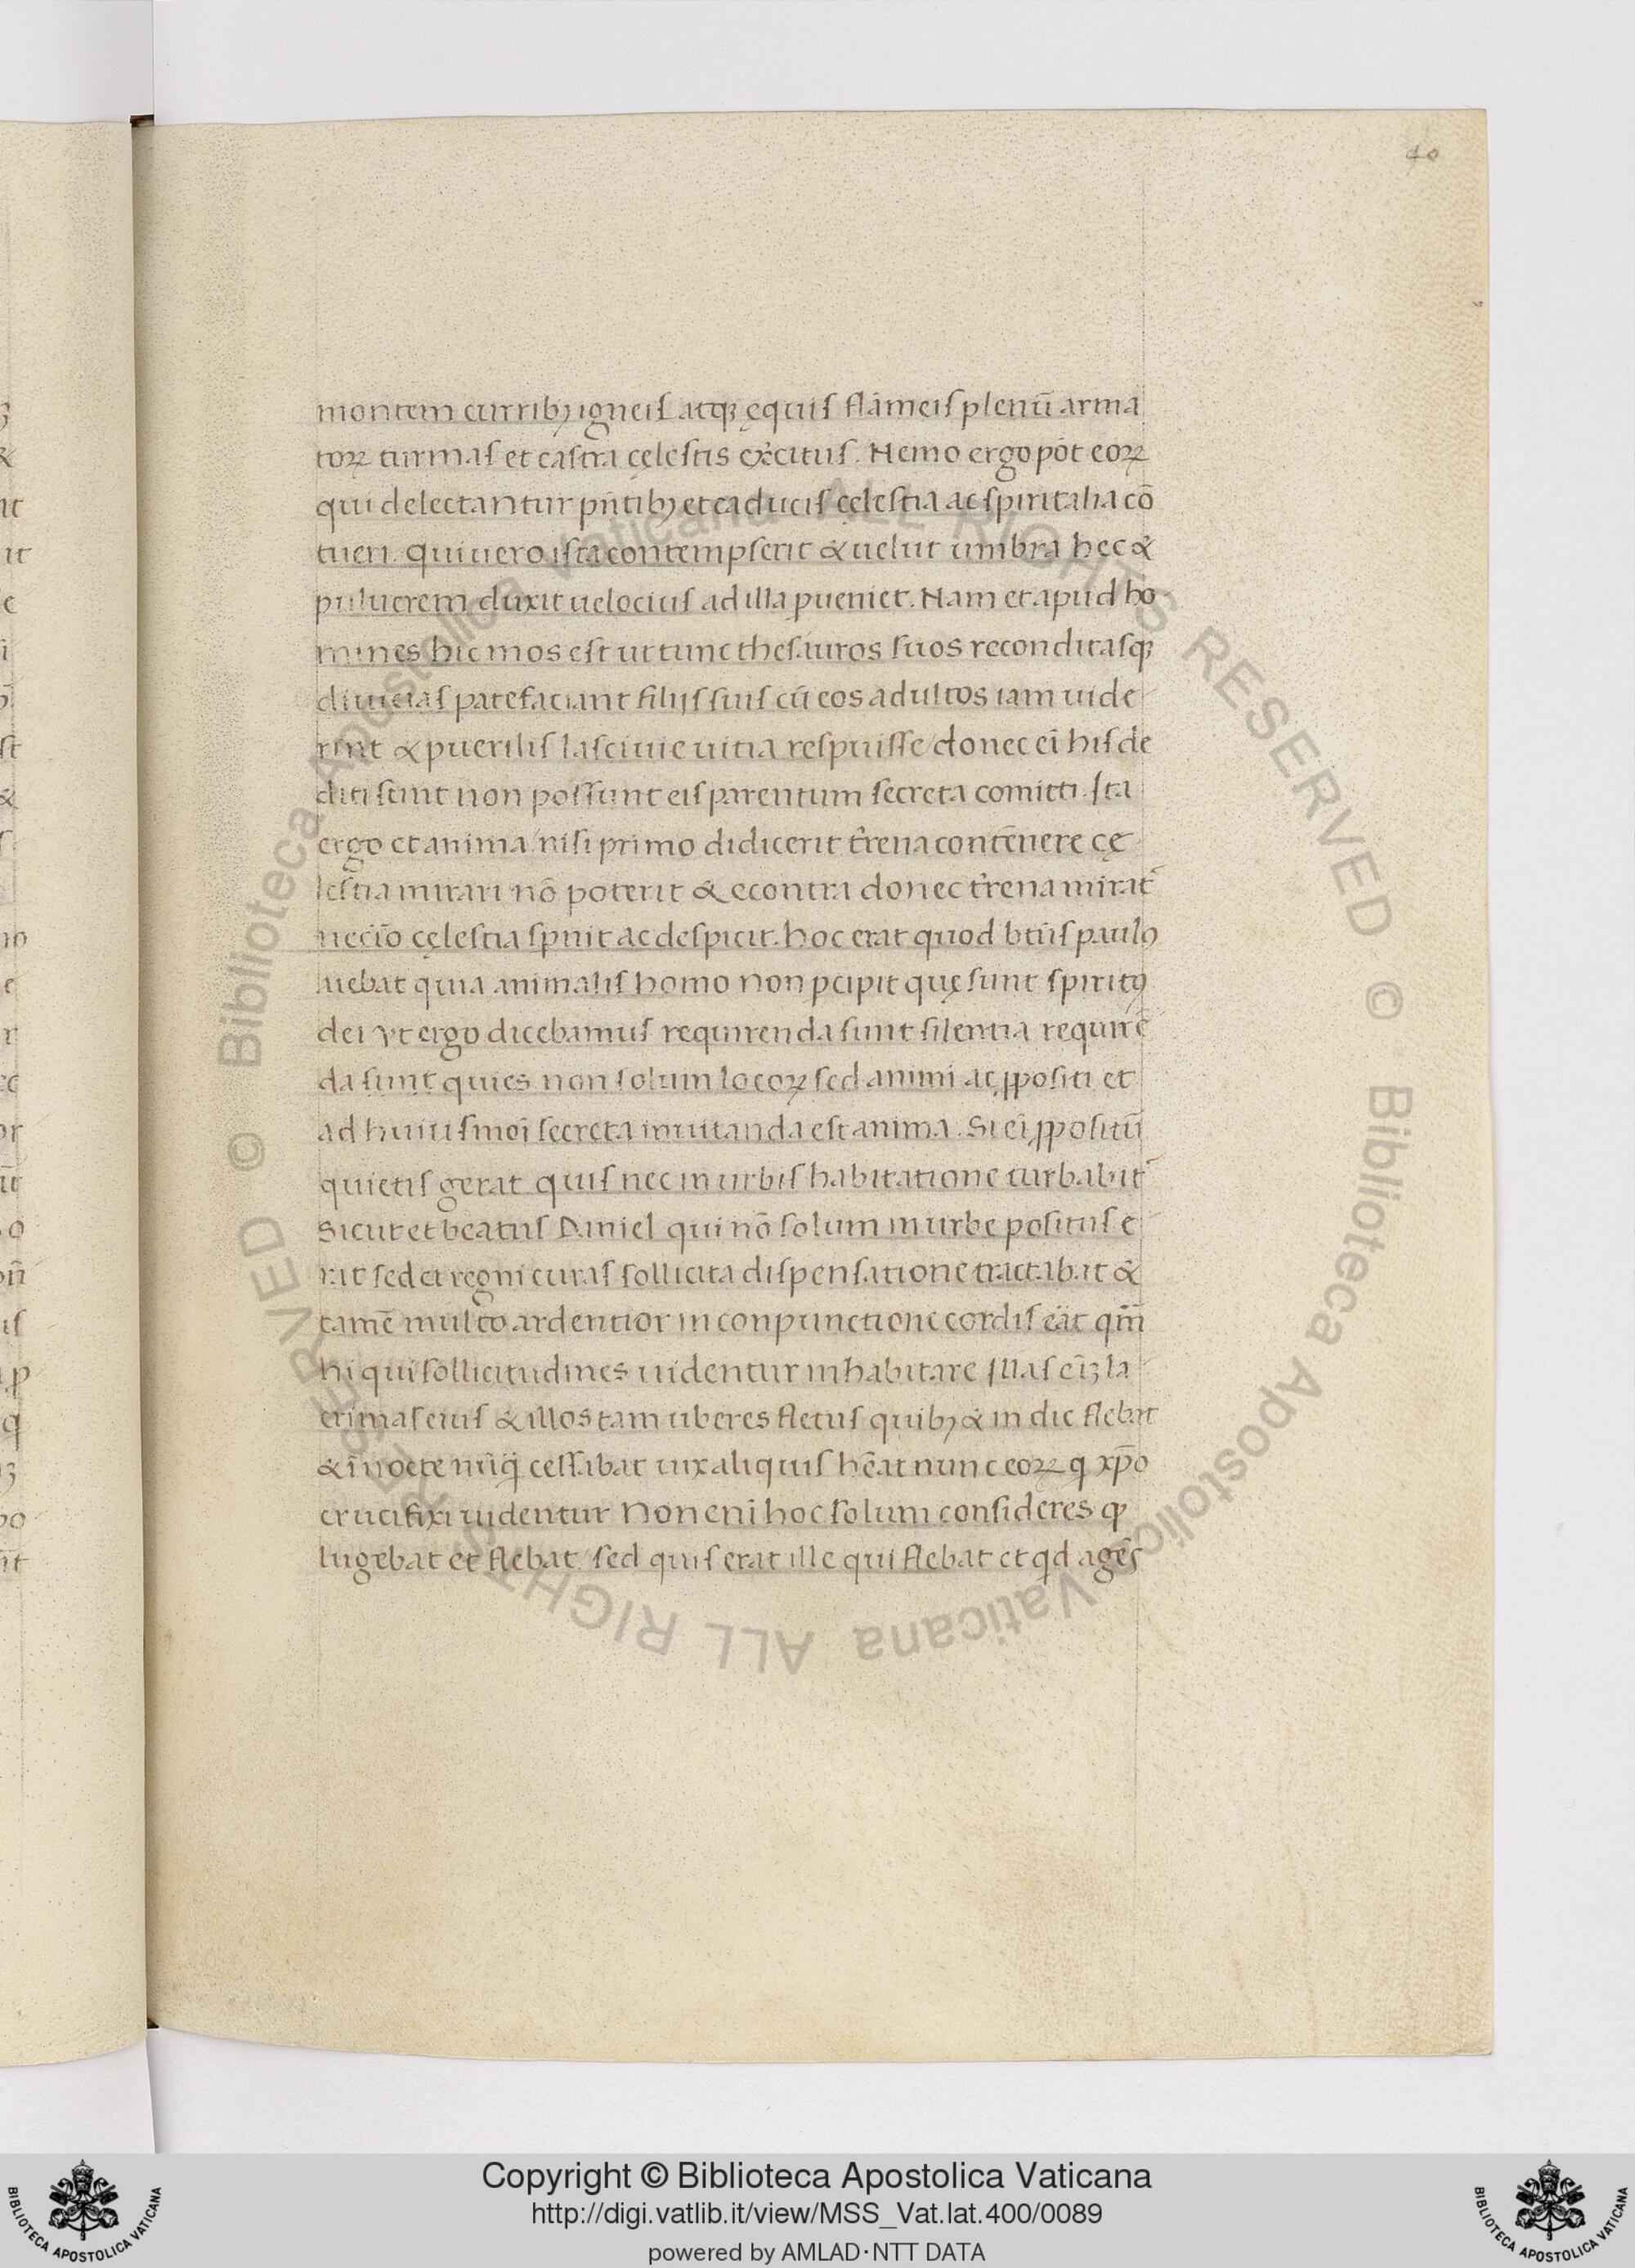 40
montem currib; igneis atq; ęquis flāmeis plenū arma
torꝝ turmas et castra cęlestis exͬcitus. Nemo ergo pōt eoꝝ
qui delectantur pn̄tib; et caducis cęlestia ac spiritalia cō
tueri. qui uero ista contempserit & uelut umbra hec &
puluerem duxit uelocius ad illa ꝑueniet. Nam et apud ho
mines hic mos est ut tunc thesauros suos reconditasq;
diuicias patefaciant filijs suis cū eos adultos iam uide
rint & puerilis lasciuie uitia respuisse/ donec eī his de
diti sunt non possunt eis parentum secreta comitti. Ita
ergo et anima/ nisi primo didicerit t̄rena contēnere cę
lestia mirari nō poterit & econtra donec t̄rena mirat̄
neccīo cęlestia spnit ac despicit. hoc erat quod bt̄us paulꝯ
aiebat quia animalis homo non ꝑcipit quę sunt spiritꝯ
dei Vt ergo dicebamus requirenda sunt silentia requirē
da sunt quies non solum locoꝝ sed animi ac ꝓpositi et
ad huiusmoī secreta inuitanda est anima. Si eī ꝓpositū
quietis gerat quis nec in urbis habitatione turbabit̄
Sicut et beatus Daniel qui nō solum in urbe positus e
rat sed et regni curas sollicita dispensatione tractabat &
tamē multo ardentior in conpunctione cordis eāt qm̄
hi qui sollicitudines uidentur inhabitare Illas eīꝫ la
crimas eius & illos tam uberes fletus quib; & in die flebat
& ī nocte nūq̄ cessabat uix aliquis hēat nunc eoꝝ q xp̄o
crucifixi uidentur Non enī hoc solum consideres ꝙ
lugebat et flebat/ sed quis erat ille qui flebat et qd agēs
Biblioteca Apostolica Vaticana ALL RIGHTS RESERVED © Biblioteca Apostolica Vaticana ALL RIGHTS RESERVED ©
Copyright © Biblioteca Apostolica Vaticana
http://digi.vatlib.it/view/MSS_Vat.lat.400/0089
powered by AMLAD·NTT DATA
BIBLIOTECA APOSTOLICA VATICANA
BIBLIOTECA APOSTOLICA VATICANA